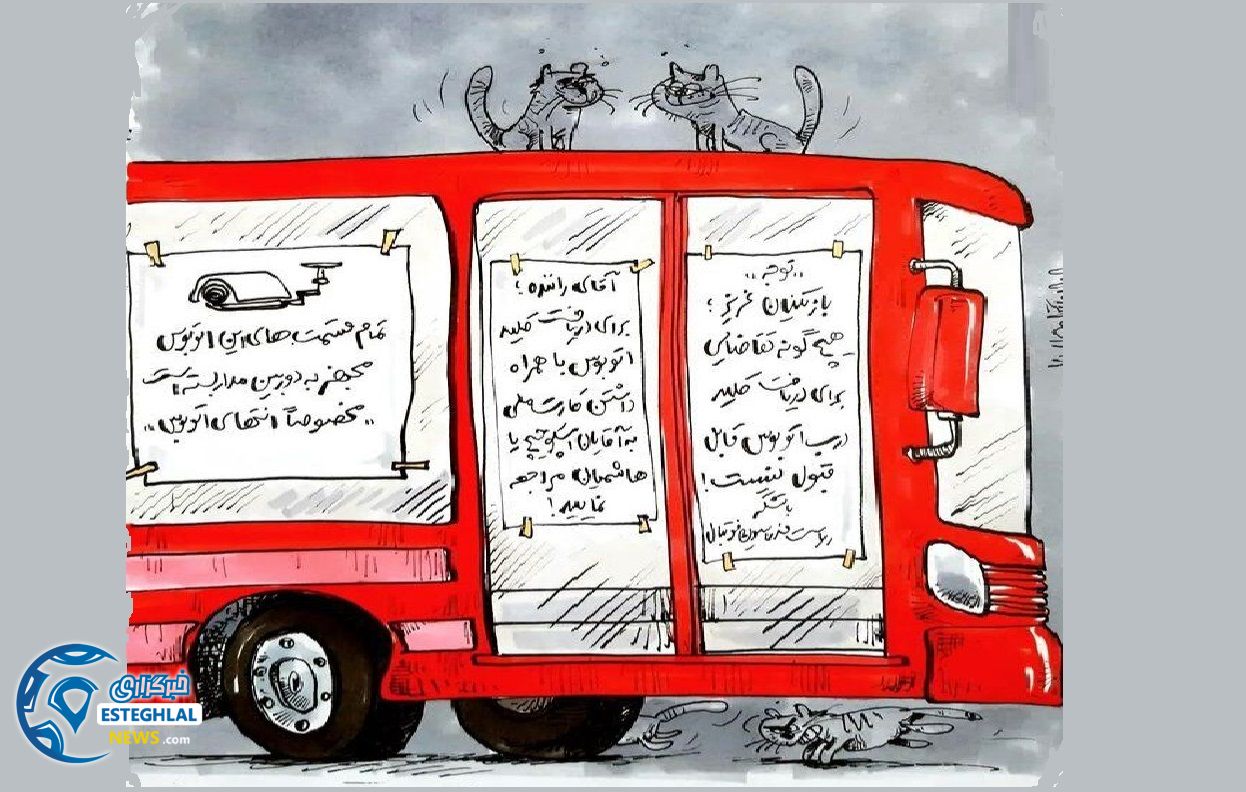 ,,توجه,,
بازیکنان عزیز؛
هیچ گونه تقاضایی
برای دریافت کلید
درب اتوبوس قابل
قبول نیست!
باتشکر
آقای راننده؛
برای دریافت کلید
اتوبوس با همراه
داشتن کارت ملی
به آقایان اسکوچیچ یا
هاشمیان مراجعه
نمایید!
تمام قسمت های این اتوبوس
مجهز به دوربین مداربسته است
,,مخصوصاً انتهای اتوبوس,,
خبرگزاری
ESTEGHLAL
NEWS.com